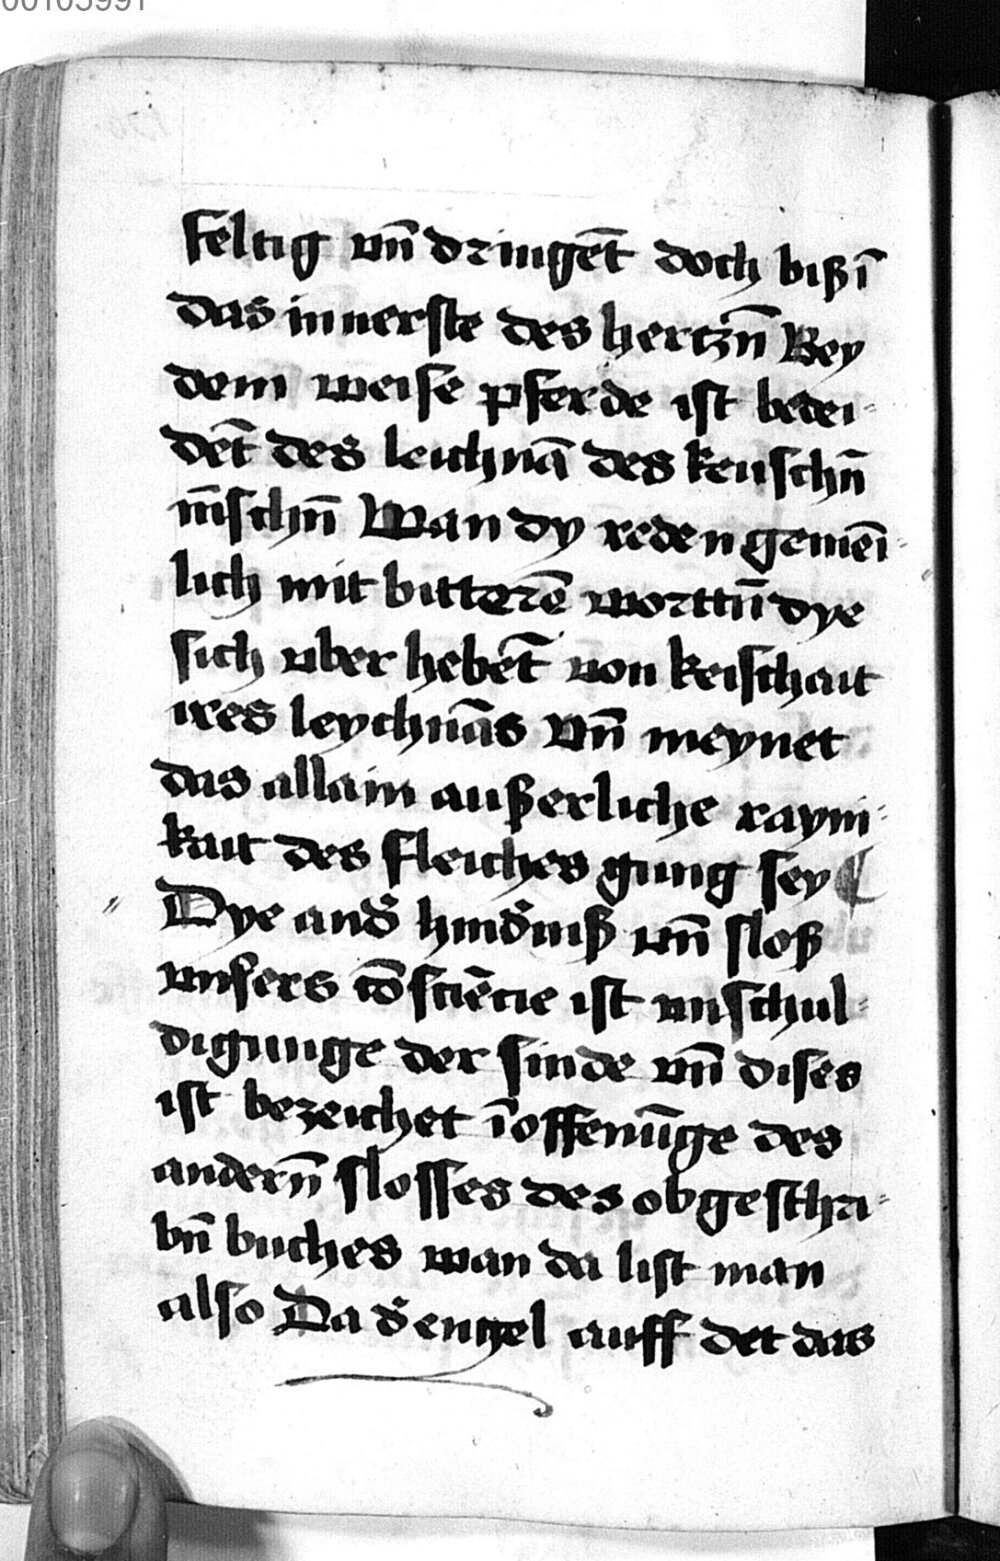 00103991
feltig vn̄ dringēt doch biß ī
das innerste des hertzn̄ Bey
dem weisē pferde ist bedei-
dēt des leichnā des keuschn̄
m̄schn̄ Wan dy reden gemeī-
lich mit bitterē wortn̄ dye
sich vber hebēt von keischait
ires leychnās vn̄ meynet
das allain außerliche rayni-
kait des fleiches gung sey
Dye and̾ hind̾niß vn̄ sloß
vnsers cōsciēcie ist vnschul-
digunge der sinde vn̄ dises
ist bezeichet ī offenūge des
andern̄ slosses des obgeschri-
bn̄ buches wan da list man
also Da d̾ engel auff det das